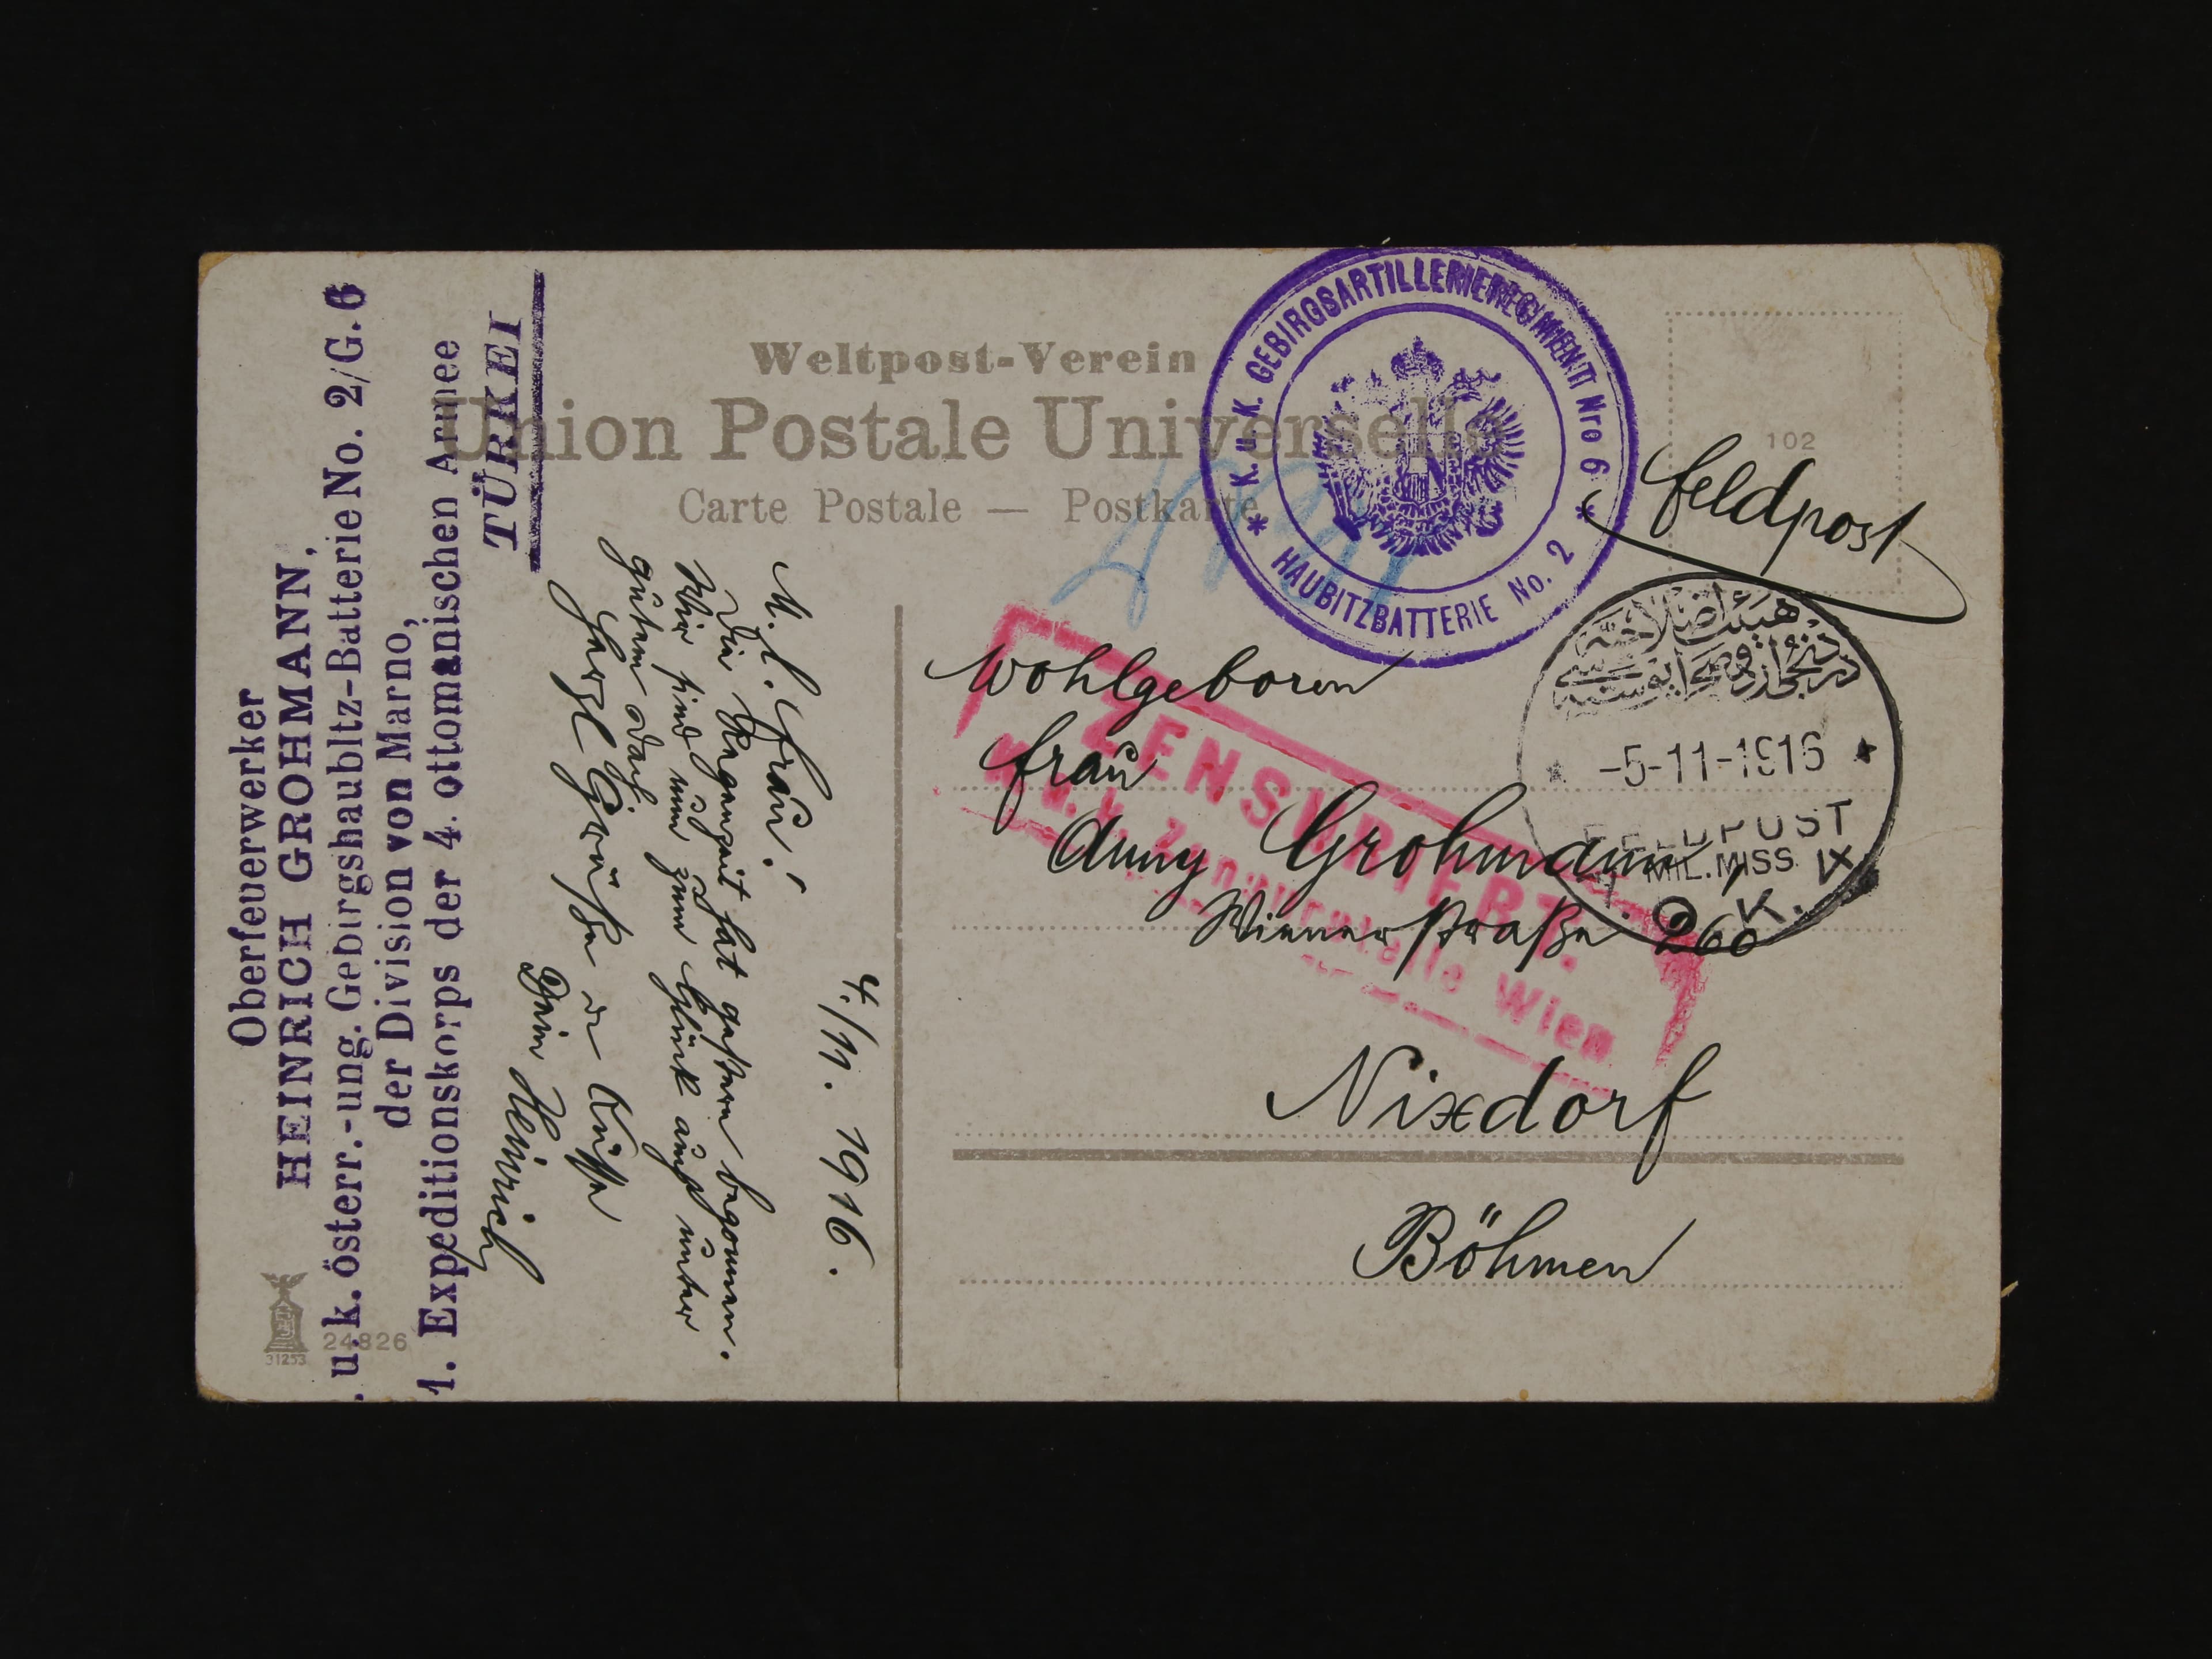 Oberfeuerwerker
HEINRICH GROHMANN,
. u. k. österr.-ung. Gebirgshaubitz-Batterie No. 2/G. 6
der Division von Marno,
1. Expeditionskorps der 4. ottomanischen Armee
TÜRKEI
Weltpost-Verein
Union Postale Universelle
Carte Postale — Postkarte
4./11. 1916.
M. l. Frau!
Die Regenzeit hat gestern begonnen.
Wir sind nun zum Glück auch unter
gutem Dach.
Herzl. Grüße u Küsse
Dein Heinrich
24826
31253
K. u. K. GEBIRGSARTILLERIEREGIMENT Nro 6
HAUBITZBATTERIE No. 2
102
Feldpost
-5-11-1916
FELDPOST
MIL.MISS.
A. O. K.
ZENSURIERT.
K. u. k. Zensurstelle Wien
Wohlgeboren
Frau
Anny Grohmann,
Wienerstraße 260
Nixdorf
Böhmen